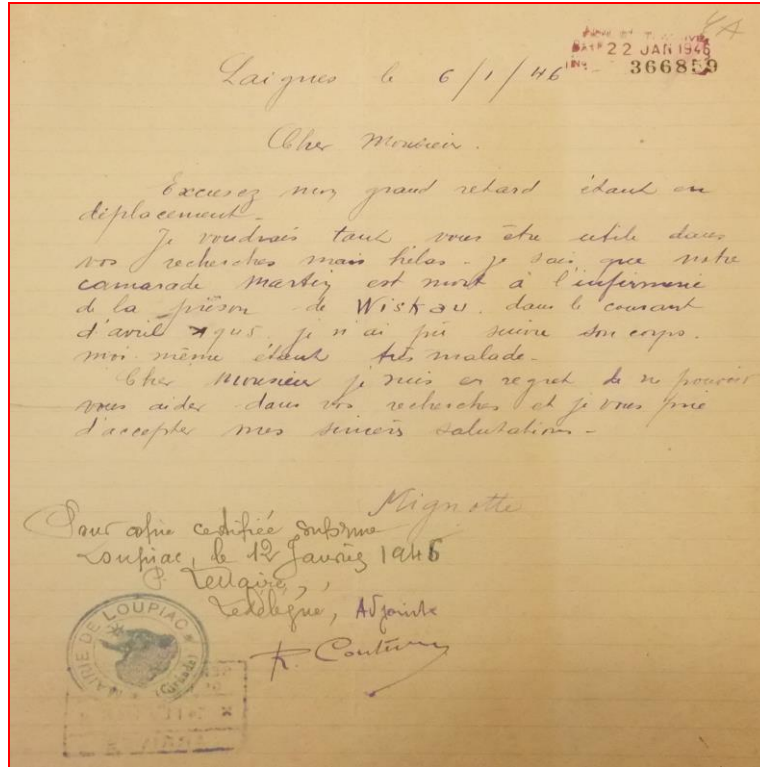 4A
22 JAN 1946
366859
Laignes le 6/1/46
Cher Monsieur.
Excusez mon grand retard étant en
déplacement.
Je voudrais tant vous être utile dans
vos recherches mais hélas - je sais que notre
camarade Martin est mort à l'infirmerie
de la prison de Wiskau dans le courant
d'avril 1945. je n'ai pu suivre son corps.
moi même étant très malade.
Cher Monsieur je suis en regret de ne pouvoir
vous aider dans vos recherches et je vous prie
d'accepter mes sincères salutations -
Mignotte
Pour copie certifiée conforme
Loupiac, le 12 Janvier 1946
Adjointe
MAIRIE DE LOUPIAC
(Gironde)